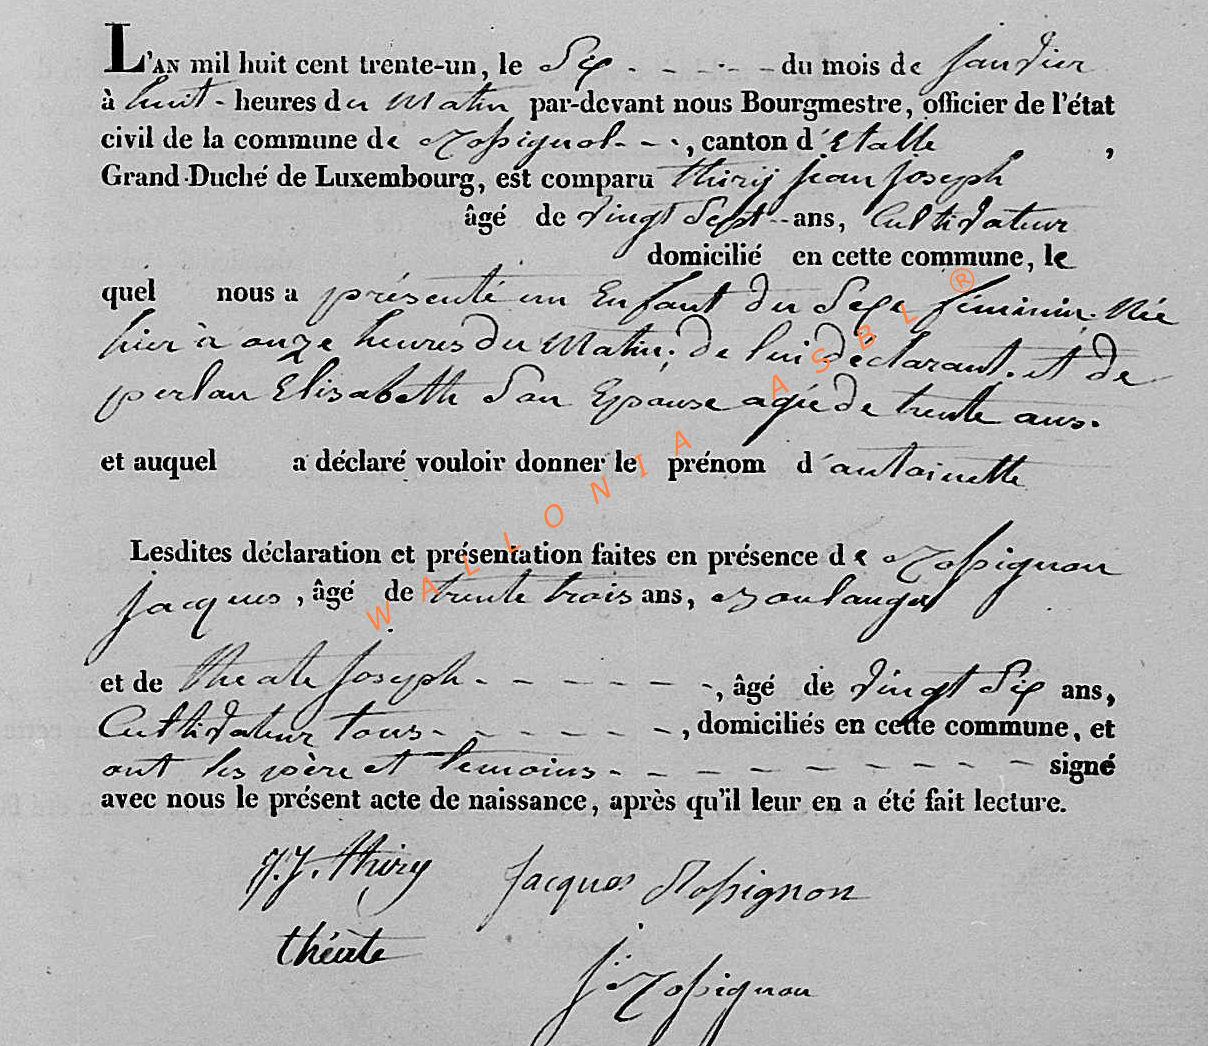 L'AN mil huit cent trente-un, le Six - - - - - du mois de Janvier
à huit - heures du Matin par-devant nous Bourgmestre, officier de l'état
civil de la commune de Rossignol - - -, canton d'Etalle ,
Grand-Duché de Luxembourg, est comparu thiry jean joseph
âgé de vingt Sept - ans, Cultivateur
domicilié en cette commune, le
quel nous a présenté un Enfant du Sexe féminin. Née
hier à onze heures du Matin, de lui déclarant. et de
perlau Elisabeth San Epouse agée de trente ans.
et auquel a déclaré vouloir donner le prénom d'antoinette
Lesdites déclaration et présentation faites en présence de Rossignon
jacques, âgé de trente trois ans, Boulanger
et de theate joseph - - - - - - -, âgé de vingt Six ans,
Cultivateur tous - - - - - -, domiciliés en cette commune, et
ont les père et temoins - - - - - - - - - - signé
avec nous le présent acte de naissance, après qu'il leur en a été fait lecture.
J. J. thiry Jacques Rossignon
théate
J: Rossignon
WALLONIA ASBL ®